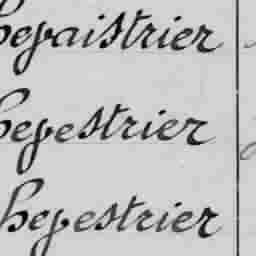 hegaistrier
hegestrier
hegestrier